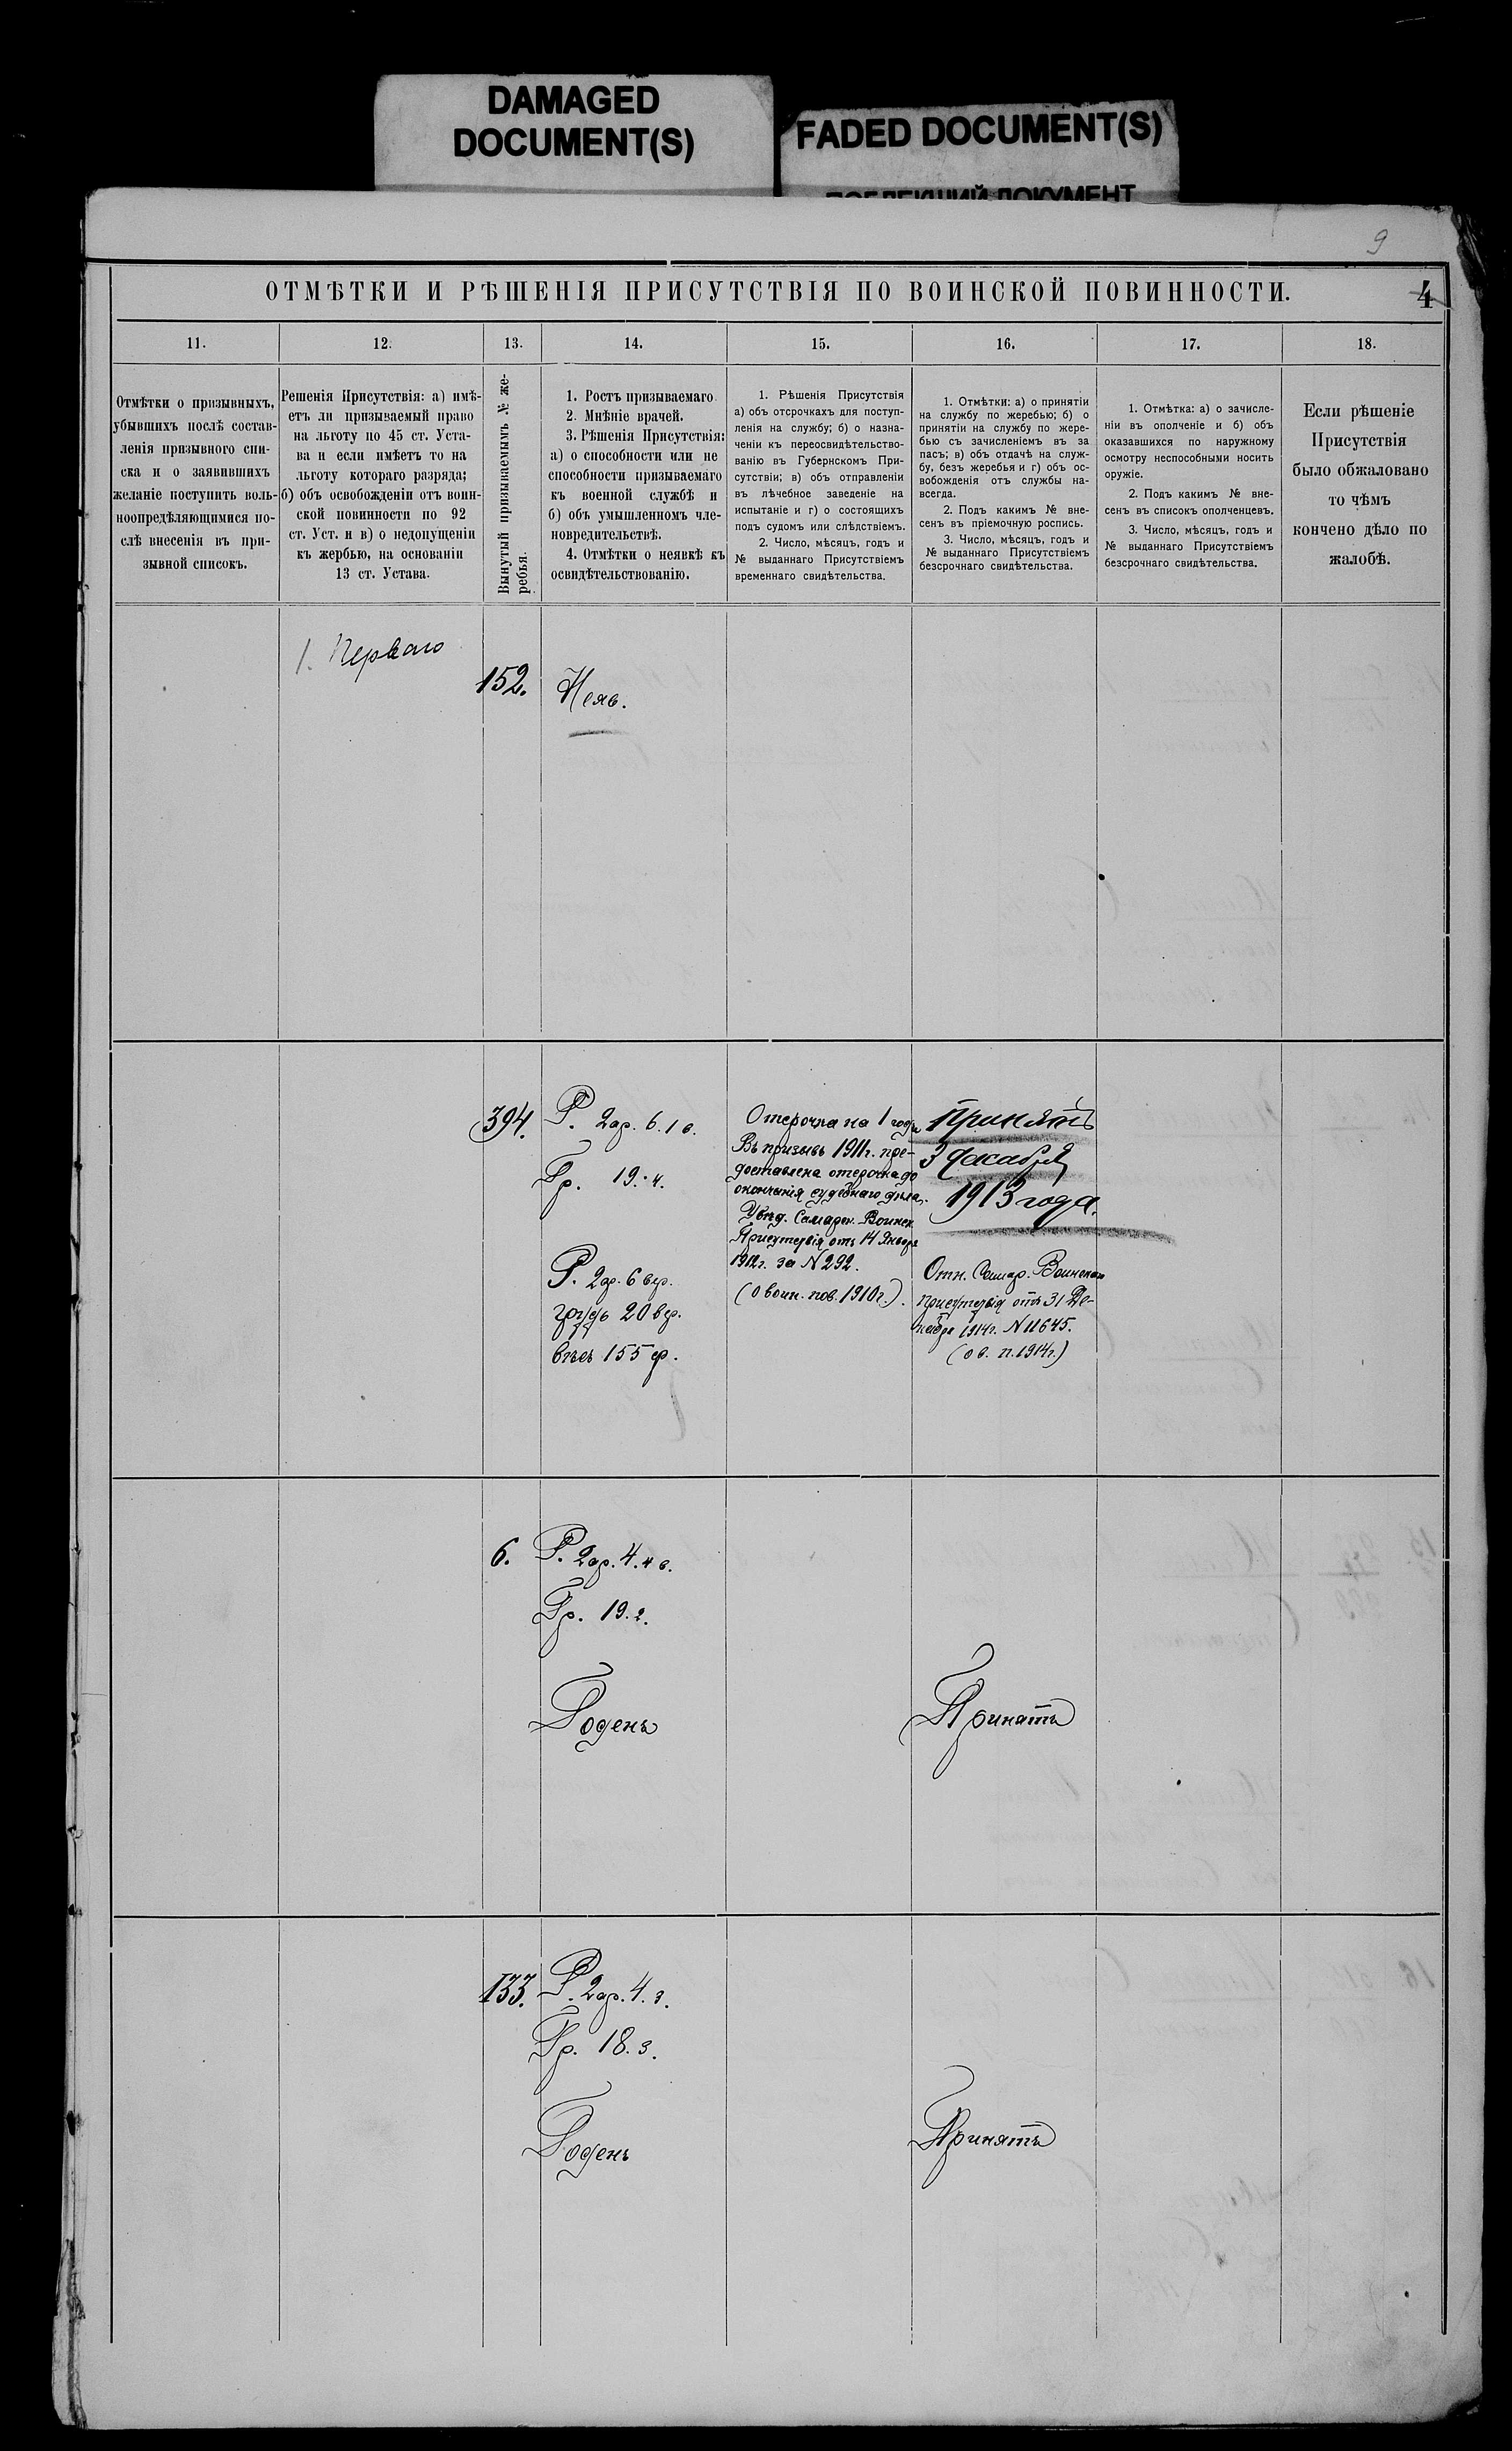 DAMAGED
DOCUMENT(S)
FADED DOCUMENT(S)
9
ОТМѢТКИ И РѢШЕНІЯ ПРИСУТСТВІЯ ПО ВОИНСКОЙ ПОВИННОСТИ.
4
11.
12.
13.
14.
15.
16.
17.
18.
Отмѣтки о призывныхъ,
убывшихъ послѣ состав-
ленія призывного спи-
ска и о заявившихъ
желаніе поступить воль-
ноопредѣляющимися по-
слѣ внесенія въ при-
зывной списокъ.
Решенія Присутствія: а) имѣ-
етъ ли призываемый право
на льготу по 45 ст. Уста-
ва и если имѣетъ то на
льготу котораго разряда;
б) объ освобожденіи отъ воин-
ской повинности по 92
ст. Уст. и в) о недопущеніи
къ жербью, на основаніи
13 ст. Устава.
Вынутый призываемымъ № же-
ребья.
1. Ростъ призываемаго.
2. Мнѣніе врачей.
3. Рѣшенія Присутствія:
а) о способности или не
способности призываемаго
къ военной службѣ и
б) объ умышленномъ чле-
новредительствѣ.
4. Отмѣтки о неявкѣ къ
освидѣтельствованію.
1. Рѣшенія Присутствія
а) объ отсрочкахъ для поступ-
ленія на службу; б) о назна-
ченіи къ переосвидѣтельство-
ванію въ Губернскомъ При-
сутствіи; в) объ отправленіи
въ лѣчебное заведеніе на
испытаніе и г) о состоящихъ
подъ судомъ или слѣдствіемъ.
2. Число, мѣсяцъ, годъ и
№ выданнаго Присутствіемъ
временнаго свидѣтельства.
1. Отмѣтки: а) о принятіи
на службу по жеребью; б) о
принятіи на службу по жере-
бью съ зачисленіемъ въ за
пасъ; в) объ отдачѣ на служ-
бу, безъ жеребья и г) объ ос-
вобожденія отъ службы на-
всегда.
2. Подъ какимъ № вне-
сенъ въ пріемочную роспись.
3. Число, мѣсяцъ, годъ и
№ выданнаго Присутствіемъ
безсрочнаго свидѣтельства.
1. Отмѣтка: а) о зачисле-
ніи въ ополченіе и б) объ
оказавшихся по наружному
осмотру неспособными носить
оружіе.
2. Подъ какимъ № вне-
сенъ въ списокъ ополченцевъ.
3. Число, мѣсяцъ, годъ и
№ выданнаго Присутствіемъ
безсрочнаго свидѣтельства.
Если рѣшеніе
Присутствія
было обжаловано
то чѣмъ
кончено дѣло по
жалобѣ.
1. Перваго
152.
Неяв.
394.
Р. 2ар. 6.1 в.
Гр. 19.4.
Р. 2 ар. 6 вер.
грудь 20 вер.
вѣсъ 155 ф.
Отсрочка на 1 годъ
Въ призывъ 1911 г. пре-
доставлена отсрочка до
окончанія судебнаго дѣла.
Увѣд. Самарск. Воинск.
Присутствія отъ 14 Января
1912 г. за № 292.
(о воин. пов. 1910 г.).
Принятъ
3 декабря
1913 года.
Отн. Самар. Воинскаго
Присутствія отъ 31 Де-
кабря 1914 г. № 11645.
(о в. п. 1914 г.)
6.
Р. 2ар. 4.4 в.
Гр. 19.2.
Годенъ
Принятъ
133.
Р. 2ар. 4.3.
Гр. 18.3.
Годенъ
Принятъ